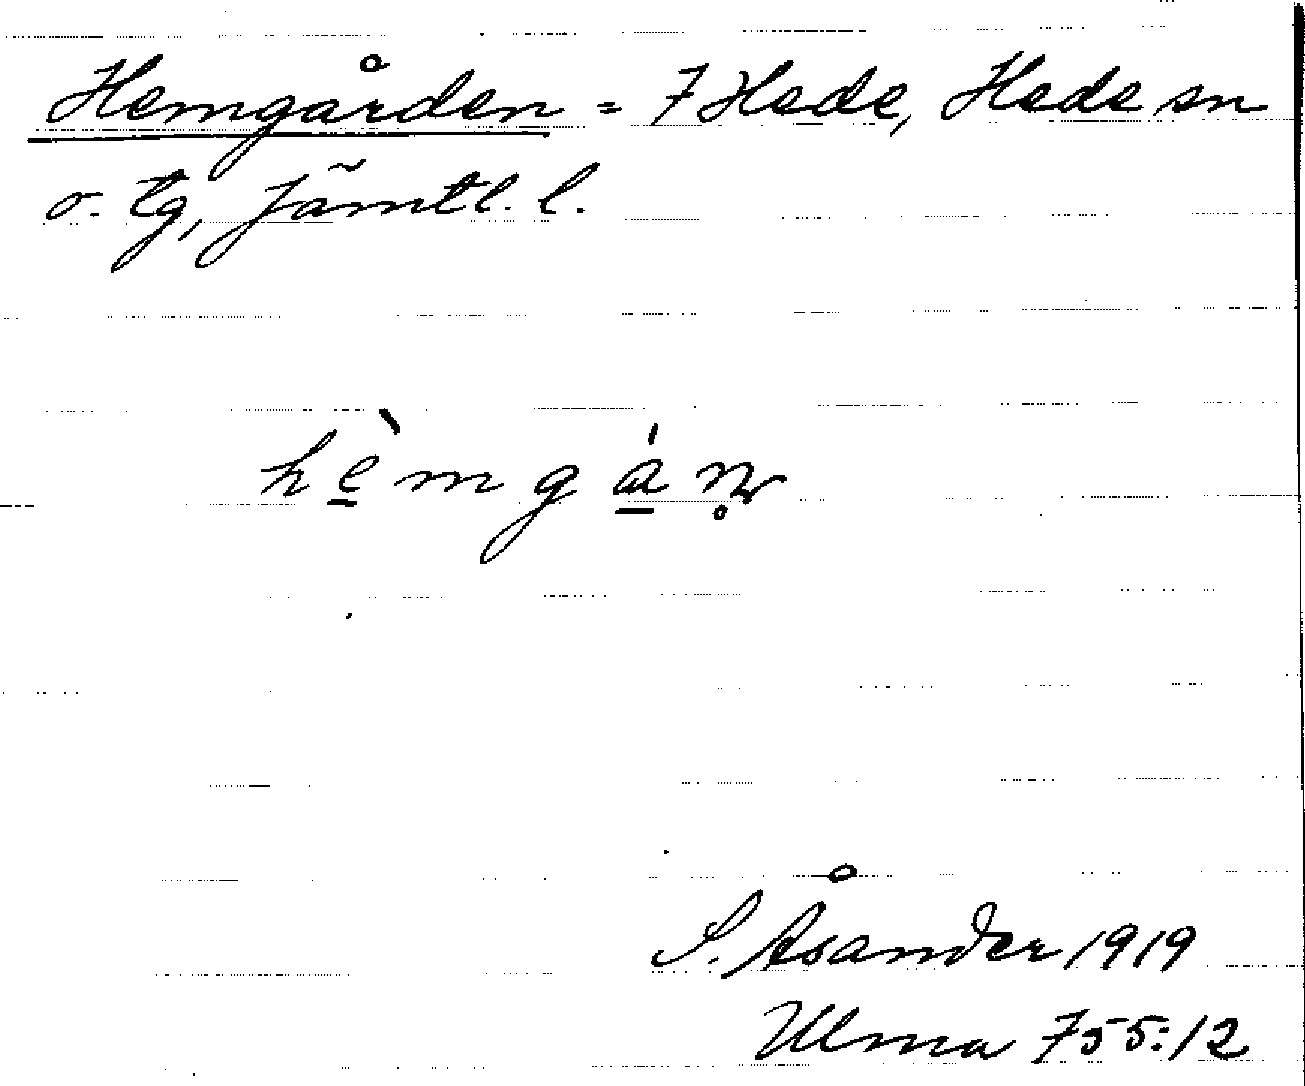 Hemgården = 7 Hede, Hede sn
o. tg, Jämtl. l.
hèmgán̥
I. Åsander 1919
Ulma 755:12